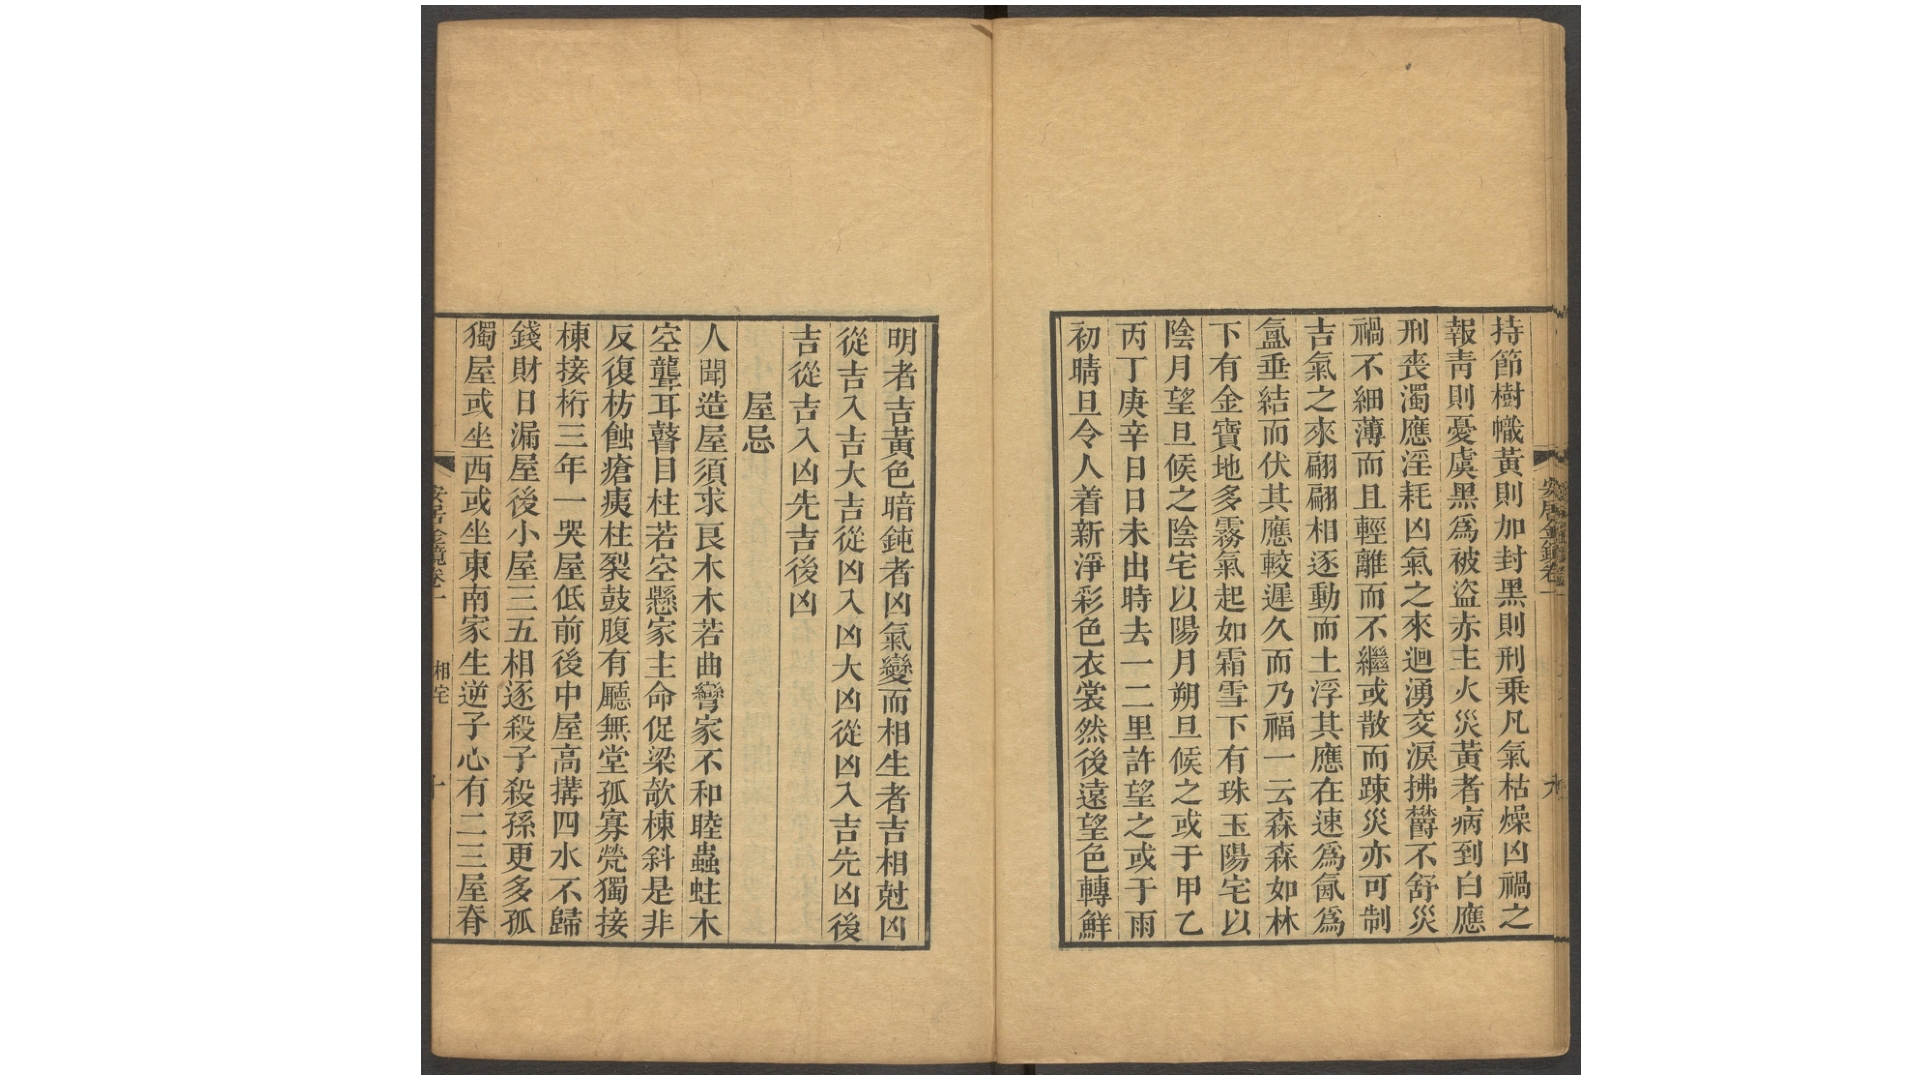 持節樹幟黃則加封黑則刑乗凡氣枯燥凶禍之
報靑則憂虞黑爲被盜赤主火災黃者病到白應
刑喪濁應淫耗凶氣之來迴湧交淚拂欝不舒災
禍不細薄而且輕離而不繼或散而踈災亦可制
吉氣之來翩翩相逐動而土浮其應在速爲氤爲
氳垂結而伏其應較遲久而乃福一云森森如林
下有金寶地多霧氣起如霜雪下有珠玉陽宅以
陰月望旦候之陰宅以陽月朔旦候之或于甲乙
丙丁庚辛日日未出時去一二里許望之或于雨
初晴旦令人着新淨彩色衣裳然後遠望色轉鮮
安居金鏡卷一
九
明者吉黃色暗鈍者凶氣變而相生者吉相尅凶
從吉入吉大吉從凶入凶大凶從凶入吉先凶後
吉從吉入凶先吉後凶
屋忌
人聞造屋須求良木木若曲彎家不和睦蟲蛀木
空聾耳瞽目柱若空懸家主命促梁欹棟斜是非
反復枋蝕瘡痍柱裂鼓腹有廳無堂孤寡煢獨接
棟接桁三年一哭屋低前後中屋高搆四水不歸
錢財日漏屋後小屋三五相逐殺子殺孫更多孤
獨屋或坐西或坐東南家生逆子心有二三屋脊
安居金鏡卷一
相宅
十